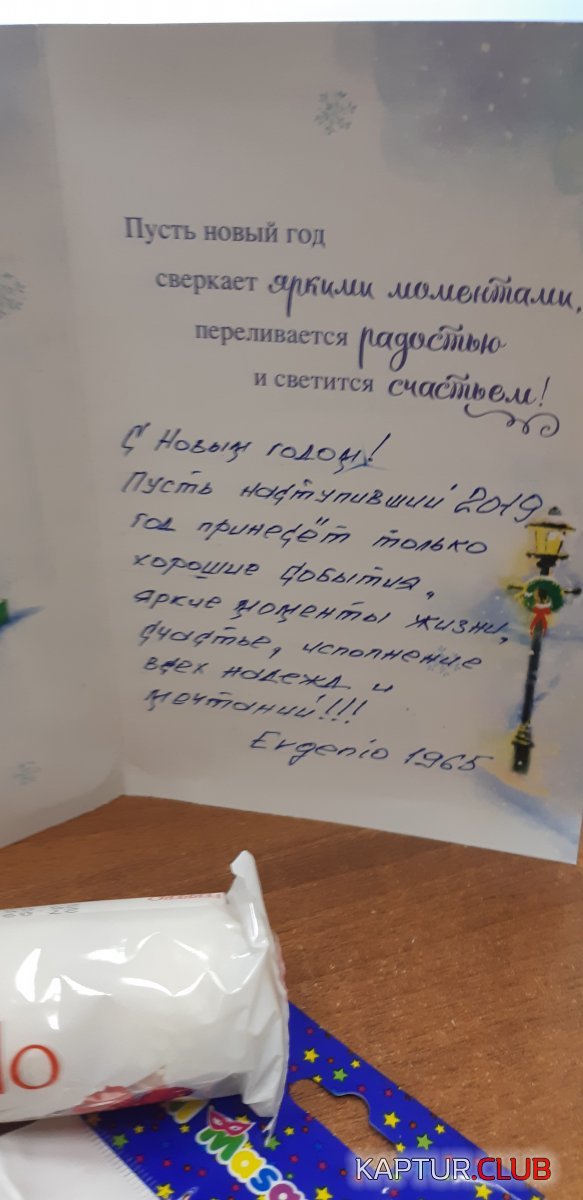 Пусть новый год
сверкает яркими моментами,
переливается радостью
и светится счастьем!
С Новым годом!
Пусть наступивший 2019
год принесёт только
хорошие события,
яркие моменты жизни,
счастье, исполнение
всех надежд и
мечтаний!!!
Evgenio 1965
lo
Masq
KAPTUR.CLUB